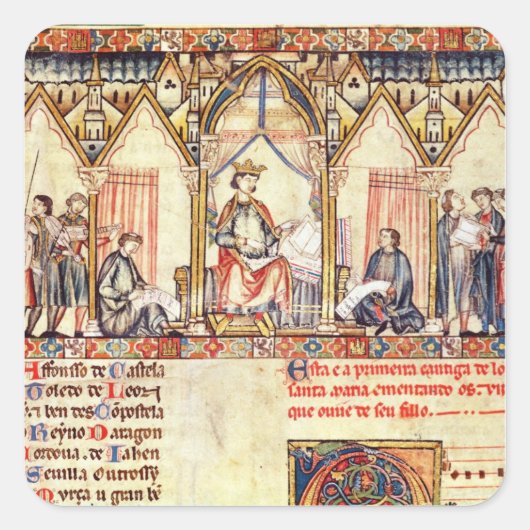 Affonsso de Castela
Toledo de Leon
ben des Cōpostela
Reyno Daragon
Cordoua. de Iahen
Seuilla Outrossy
Murça u gran bē
Esta e a primeira cantiga de lo
santa maria ementando os. vii
que ouue de seu fillo.